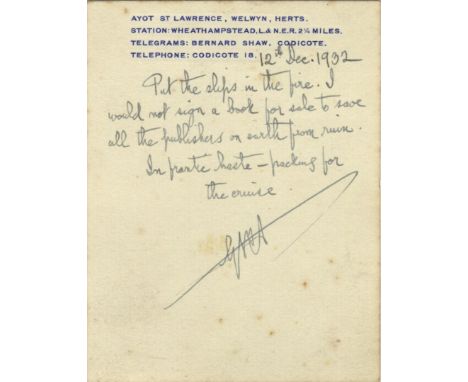 AYOT ST LAWRENCE, WELWYN, HERTS.
STATION: WHEATHAMPSTEAD, L. & N.E.R. 2¼ MILES.
TELEGRAMS: BERNARD SHAW, CODICOTE.
TELEPHONE: CODICOTE 18.
12th Dec. 1932
Put the slips in the fire. I
would not sign a book for sale to save
all the publishers on earth from ruin.
In frantic haste – packing for
the cruise